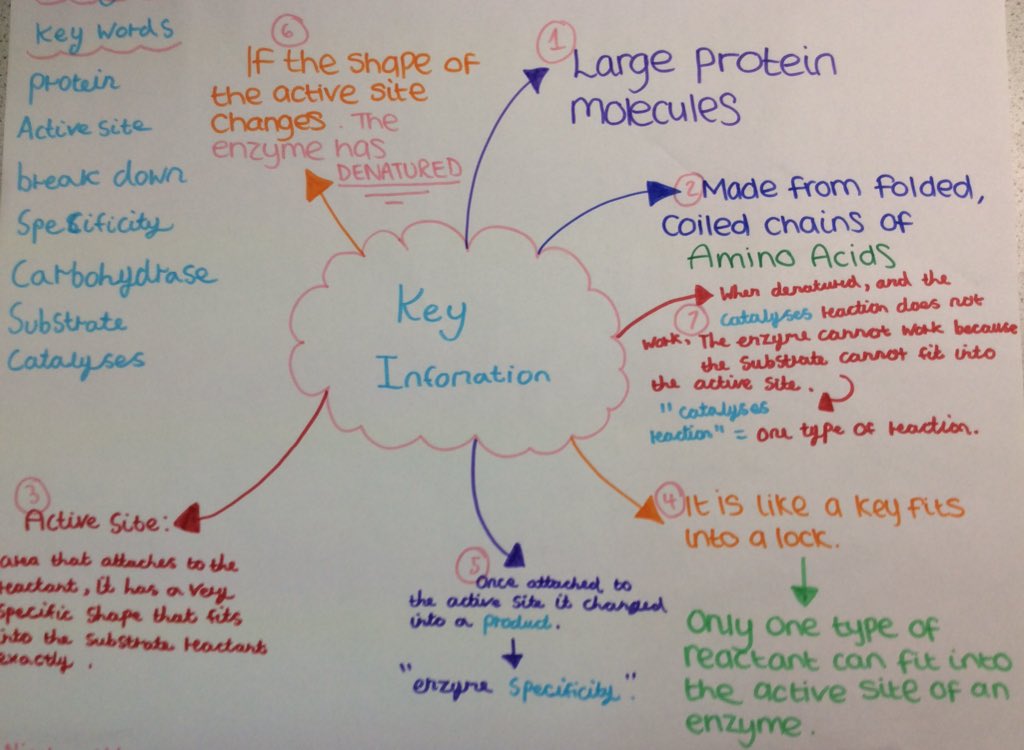 Key Words
protein
Active site
break down
Specificity
Carbohydrase
Substrate
Catalyses
6
If the shape of
the active site
Changes. The
enzyme has
DENATURED
1
Large protein
molecules
2 Made from folded,
coiled chains of
Amino Acids
Key
Infomation
7
When denatured, and the
catalyses reaction does not
work. The enzyme cannot work because
the substrate cannot fit into
the active site.
"catalyses
reaction" = one type of reaction.
3
Active Site:
area that attaches to the
reactant, it has a very
specific shape that fits
into the substrate reactant
exactly.
5
Once attached to
the active site it changed
into a product.
"enzyme specificity".
4 It is like a key fits
into a lock.
Only one type of
reactant can fit into
the active site of an
enzyme.